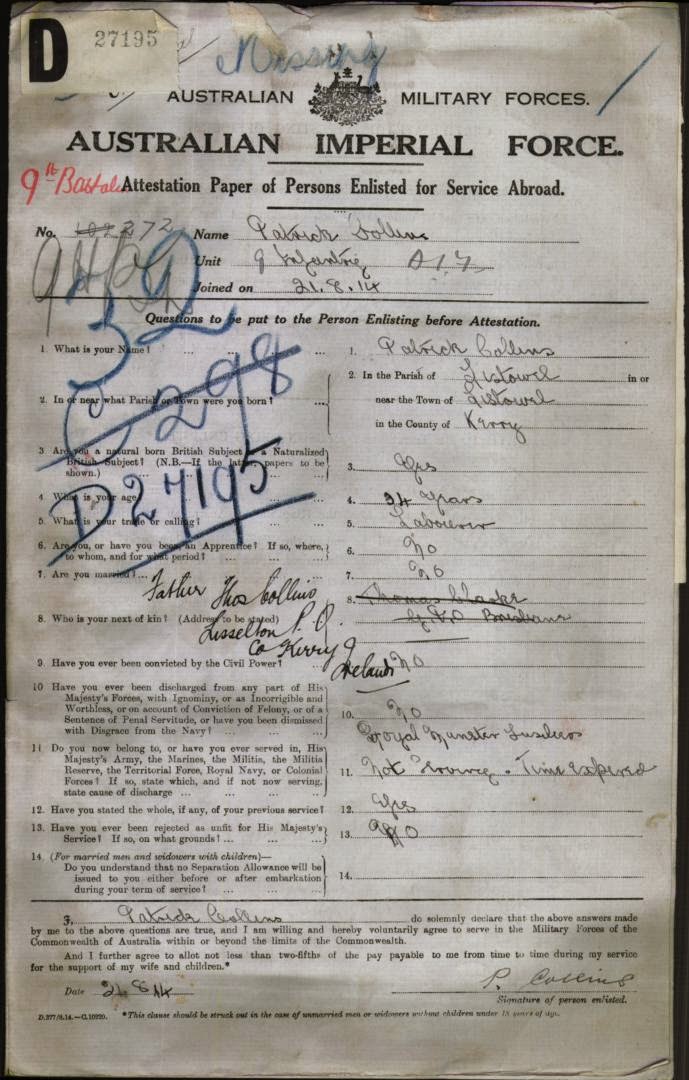 D
27195
Missing
AUSTRALIAN MILITARY FORCES.
AUSTRALIAN IMPERIAL FORCE.
9th Attestation Paper of Persons Enlisted for Service Abroad.
No. 272 Name Patrick Collins
Unit 9 Infantry
Joined on 21.8.14
32
Questions to be put to the Person Enlisting before Attestation.
1. What is your Name? ... ... ... ... 1. Patrick Collins
C 298
2. In or near what Parish or Town were you born? ... 2. In the Parish of Listowel in or
near the Town of Listowel
in the County of Kerry
3 Are you a natural born British Subject or a Naturalized
British Subject? (N.B.—If the latter, papers to be
shown.) 3. Yes
D 27195
4. What is your age? 4. 24 Years
5. What is your trade or calling? 5. Labourer
6. Are you, or have you been an Apprentice? If so, where,
to whom, and for what period? 6. No
7. Are you married? ... 7. No
Father Thos Collins
Lisselton P. O.
Co Kerry
Ireland
8. Who is your next of kin? (Address to be stated) 8. Thomas
G.P.O Brisbane
9. Have you ever been convicted by the Civil Power? No
10 Have you ever been discharged from any part of His
Majesty's Forces, with Ignominy, or as Incorrigible and
Worthless, or on account of Conviction of Felony, or of a
Sentence of Penal Servitude, or have you been dismissed
with Disgrace from the Navy? ... ... 10. No
11 Do you now belong to, or have you ever served in, His
Majesty's Army, the Marines, the Militia, the Militia
Reserve, the Territorial Force, Royal Navy, or Colonial
Forces? If so, state which, and if not now serving,
state cause of discharge ... ... ...
Royal Munster Fusiliers
11. Not Serving - Time Expired
12. Have you stated the whole, if any, of your previous service? 12. Yes
13. Have you ever been rejected as unfit for His Majesty's
Service? If so, on what grounds? ... ... ... 13. No
14. (For married men and widowers with children)—
Do you understand that no Separation Allowance will be
issued to you either before or after embarkation
during your term of service? ... ... ... 14.
I, Patrick Collins do solemnly declare that the above answers made
by me to the above questions are true, and I am willing and hereby voluntarily agree to serve in the Military Forces of the
Commonwealth of Australia within or beyond the limits of the Commonwealth.
And I further agree to allot not less than two-fifths of the pay payable to me from time to time during my service
for the support of my wife and children.*
Date 21.8.14 P. Collins
Signature of person enlisted.
D.277/8.14.—C.10220. *This clause should be struck out in the case of unmarried men or widowers without children under 18 years of age.